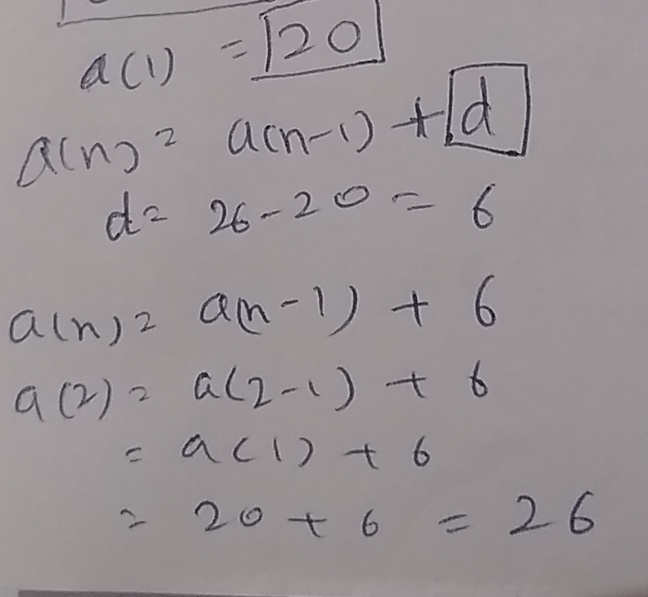 a(1) = 20
a(n) = a(n-1) + d
d = 26-20 = 6
a(n) = a(n-1) + 6
a(2) = a(2-1) + 6
= a(1) + 6
= 20 + 6 = 26